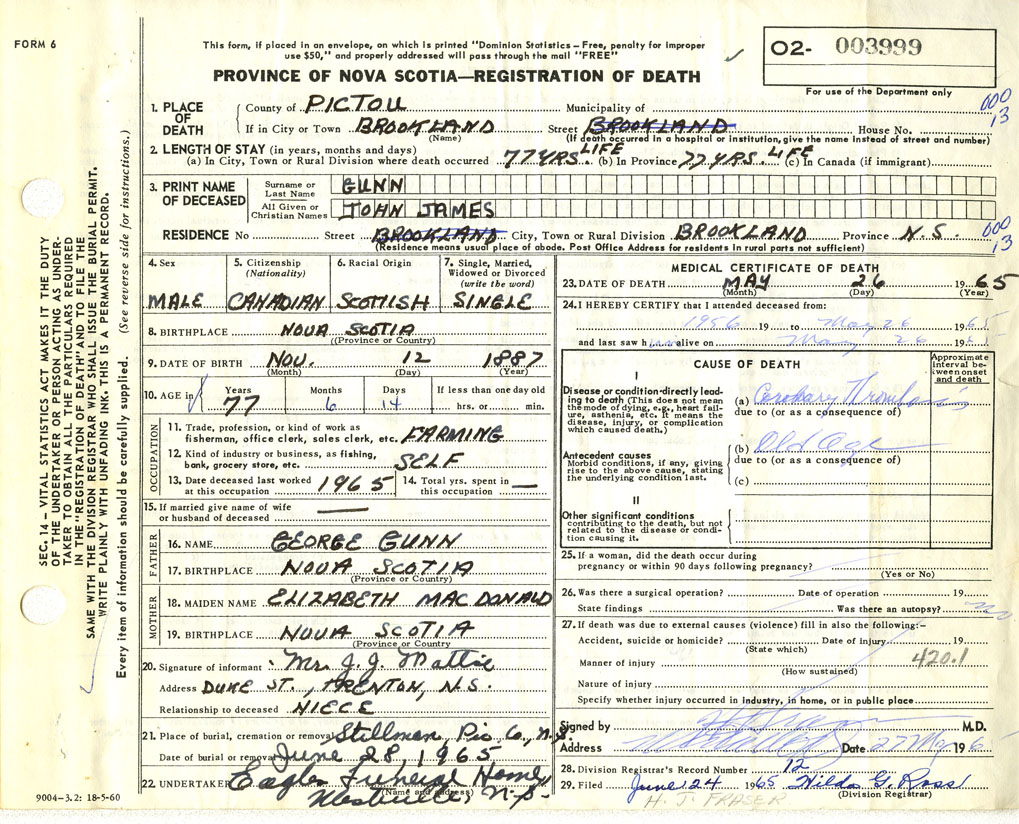 FORM 6
This form, if placed in an envelope, on which is printed "Dominion Statistics—Free, penalty for improper
use $50," and properly addressed will pass through the mail "FREE"
PROVINCE OF NOVA SCOTIA—REGISTRATION OF DEATH
O2- 003999
For use of the Department only
SEC. 14 – VITAL STATISTICS ACT MAKES IT THE DUTY
OF THE UNDERTAKER OR PERSON ACTING AS UNDER-
TAKER TO OBTAIN ALL THE PARTICULARS REQUIRED
IN THE "REGISTRATION OF DEATH" AND TO FILE THE
SAME WITH THE DIVISION REGISTRAR WHO SHALL ISSUE THE BURIAL PERMIT.
WRITE PLAINLY WITH UNFADING INK. THIS IS A PERMANENT RECORD.
Every item of information should be carefully supplied. (See reverse side for instructions.)
1. PLACE OF DEATH
County of PICTOU Municipality of
000
13
If in City or Town BROOKLAND Street BROOKLAND House No.
(Name) (If death occurred in a hospital or institution, give the name instead of street and number)
2. LENGTH OF STAY (in years, months and days)
(a) In City, Town or Rural Division where death occurred 77 YRS. LIFE (b) In Province 77 YRS. LIFE (c) In Canada (if immigrant)
3. PRINT NAME OF DECEASED
Surname or Last Name GUNN
All Given or Christian Names JOHN JAMES
RESIDENCE No Street BROOKLAND City, Town or Rural Division BROOKLAND Province N.S.
000
13
(Residence means usual place of abode. Post Office Address for residents in rural parts not sufficient)
4. Sex
MALE
5. Citizenship (Nationality)
CANADIAN
6. Racial Origin
SCOTTISH
7. Single, Married, Widowed or Divorced (write the word)
SINGLE
8. BIRTHPLACE NOVA SCOTIA
(Province or Country)
9. DATE OF BIRTH NOV. 12 1887
(Month) (Day) (Year)
10. AGE in Years 77 Months 6 Days 14 If less than one day old
hrs. or min.
OCCUPATION
11. Trade, profession, or kind of work as
fisherman, office clerk, sales clerk, etc. FARMING
12. Kind of industry or business, as fishing,
bank, grocery store, etc. SELF
13. Date deceased last worked at this occupation 1965
14. Total yrs. spent in this occupation —
15. If married give name of wife or husband of deceased —
FATHER
16. NAME GEORGE GUNN
17. BIRTHPLACE NOVA SCOTIA
(Province or Country)
MOTHER
18. MAIDEN NAME ELIZABETH MACDONALD
19. BIRTHPLACE NOVA SCOTIA
(Province or Country)
20. Signature of informant Mrs. J. J. Mattie
Address DUKE ST., TRENTON, N.S.
Relationship to deceased NIECE
21. Place of burial, cremation or removal Stillman, Pic Co., N.S.
Date of burial or removal June 28, 1965
22. UNDERTAKER Eagles Funeral Home
(Name and address)
Westville, N.S.
9004-3.2: 18-5-60
MEDICAL CERTIFICATE OF DEATH
23. DATE OF DEATH MAY 26 1965
(Month) (Day) (Year)
24. I HEREBY CERTIFY that I attended deceased from:
1956 19 to May 26 1965
and last saw him alive on May 26 1965
CAUSE OF DEATH
Approximate interval between onset and death
I
Disease or condition directly leading to death (This does not mean
the mode of dying, e.g., heart failure, asthenia, etc. It means the
disease, injury, or complication which caused death.)
(a) Coronary Thrombosis
due to (or as a consequence of)
Antecedent causes
Morbid conditions, if any, giving
rise to the above cause, stating
the underlying condition last.
(b) Old Age
due to (or as a consequence of)
(c)
II
Other significant conditions
contributing to the death, but not
related to the disease or condition causing it.
25. If a woman, did the death occur during
pregnancy or within 90 days following pregnancy?
(Yes or No)
26. Was there a surgical operation? Date of operation 19
State findings Was there an autopsy? no
27. If death was due to external causes (violence) fill in also the following:-
Accident, suicide or homicide? Date of injury 19
(State which)
Manner of injury 420.1
(How sustained)
Nature of injury
Specify whether injury occurred in industry, in home, or in public place
Signed by M.D.
Address Date 27 May 196
28. Division Registrar's Record Number 12
29. Filed June 24 1965 Hilda G. Ross
(Division Registrar)
H. J. FRASER